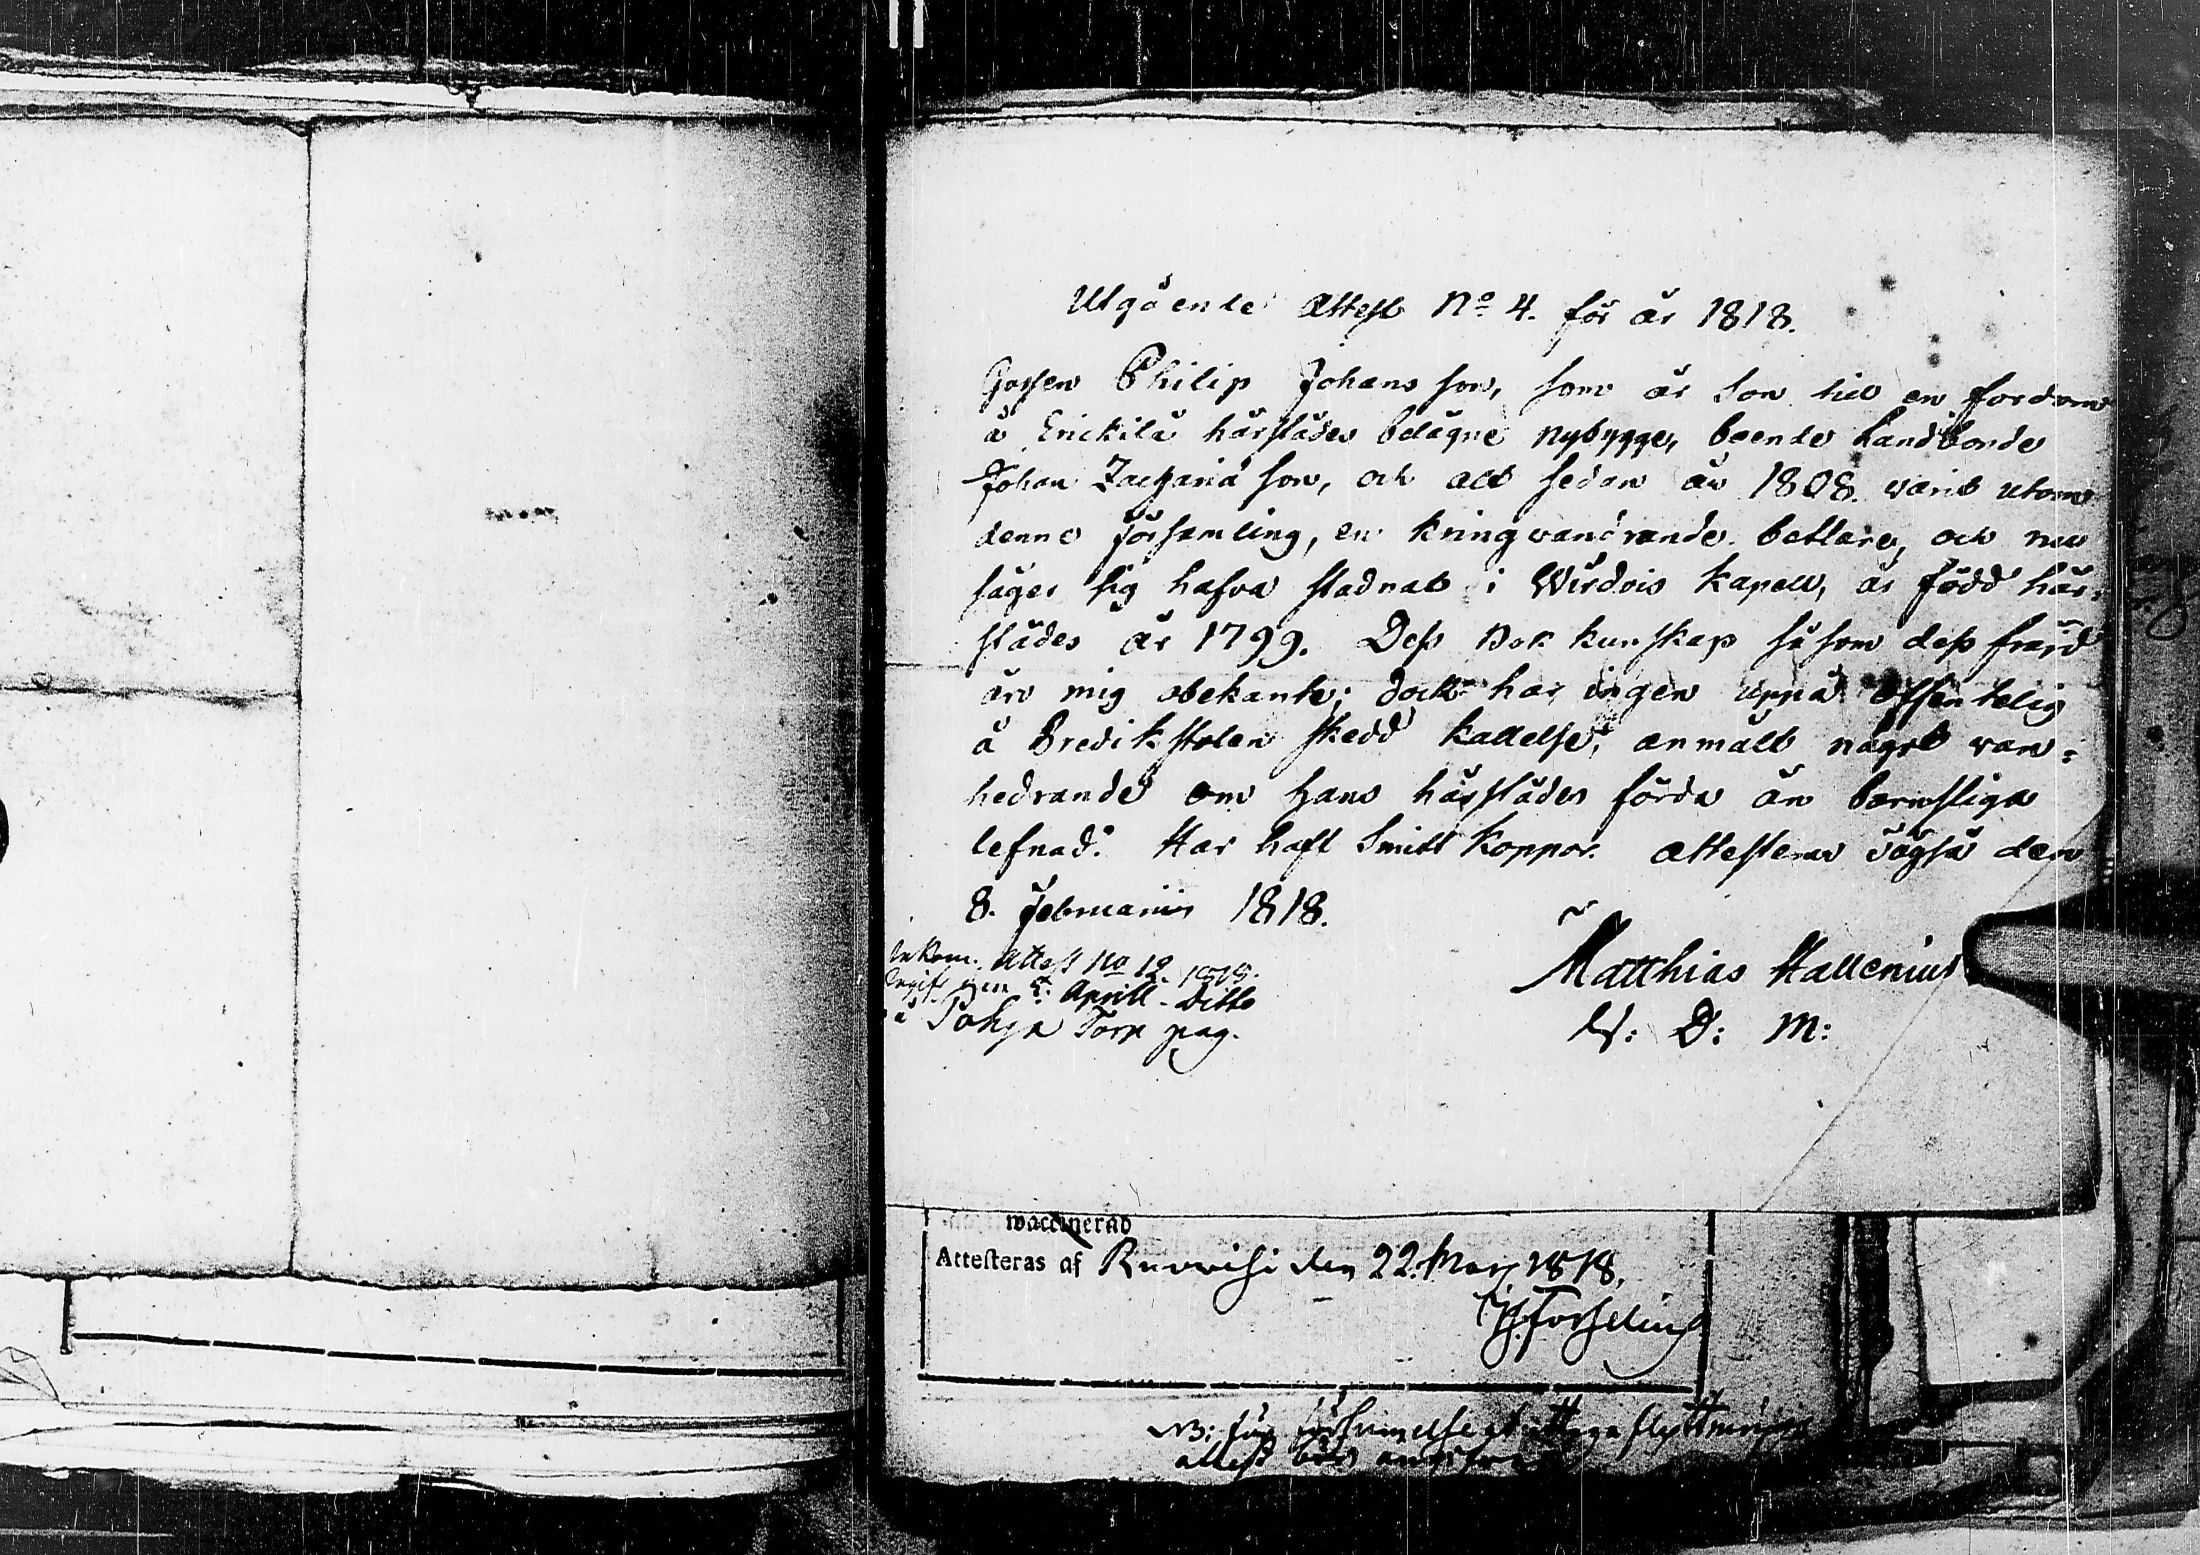 Utgående Attest No 4. för år 1818.
Gossen Philip Johansson, som är Son till en fordom
å Erickilä härstädes belägne nybygge, boende Landbonde
Johan Zachariä son, och allt sedan år 1808. varit utom
denne församling, en kringvandrande betlare, och nu
säger sig hafva stadnat i Wirdois Kapell, är född här-
städes år 1799. Dess Bok kunskap såsom dess fräjd
äro mig obekante; dock har ingen uppå offentelig
å Predikstolen skedd kallelse, anmält något van-
hedrande om hans härstädes förda än barnsliga
lefnad. Har haft Smitt Koppor. Attesteras den
8. Februarii 1818.
Matthias Hallenius
V: D: M:
Inkom. Attest No 12. 1818.
Aprill. Ditto
å Pohja Torp pag.
waccinerad
Attesteras af Ruovesi den 22. Mars 1818.
Forselius
NB:
attest bör